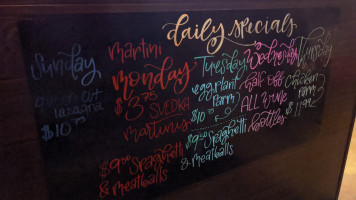 daily specials
Sunday
lasagna
$10
martini
monday
$3.75
SVEDKA
martinis
$9 spaghetti
& meatballs
Tuesday
eggplant
parm
$10
$9 spaghetti
&
meatballs
Wednesday
half off
All wine
bottles
Thursday
chicken
parm
$11.99